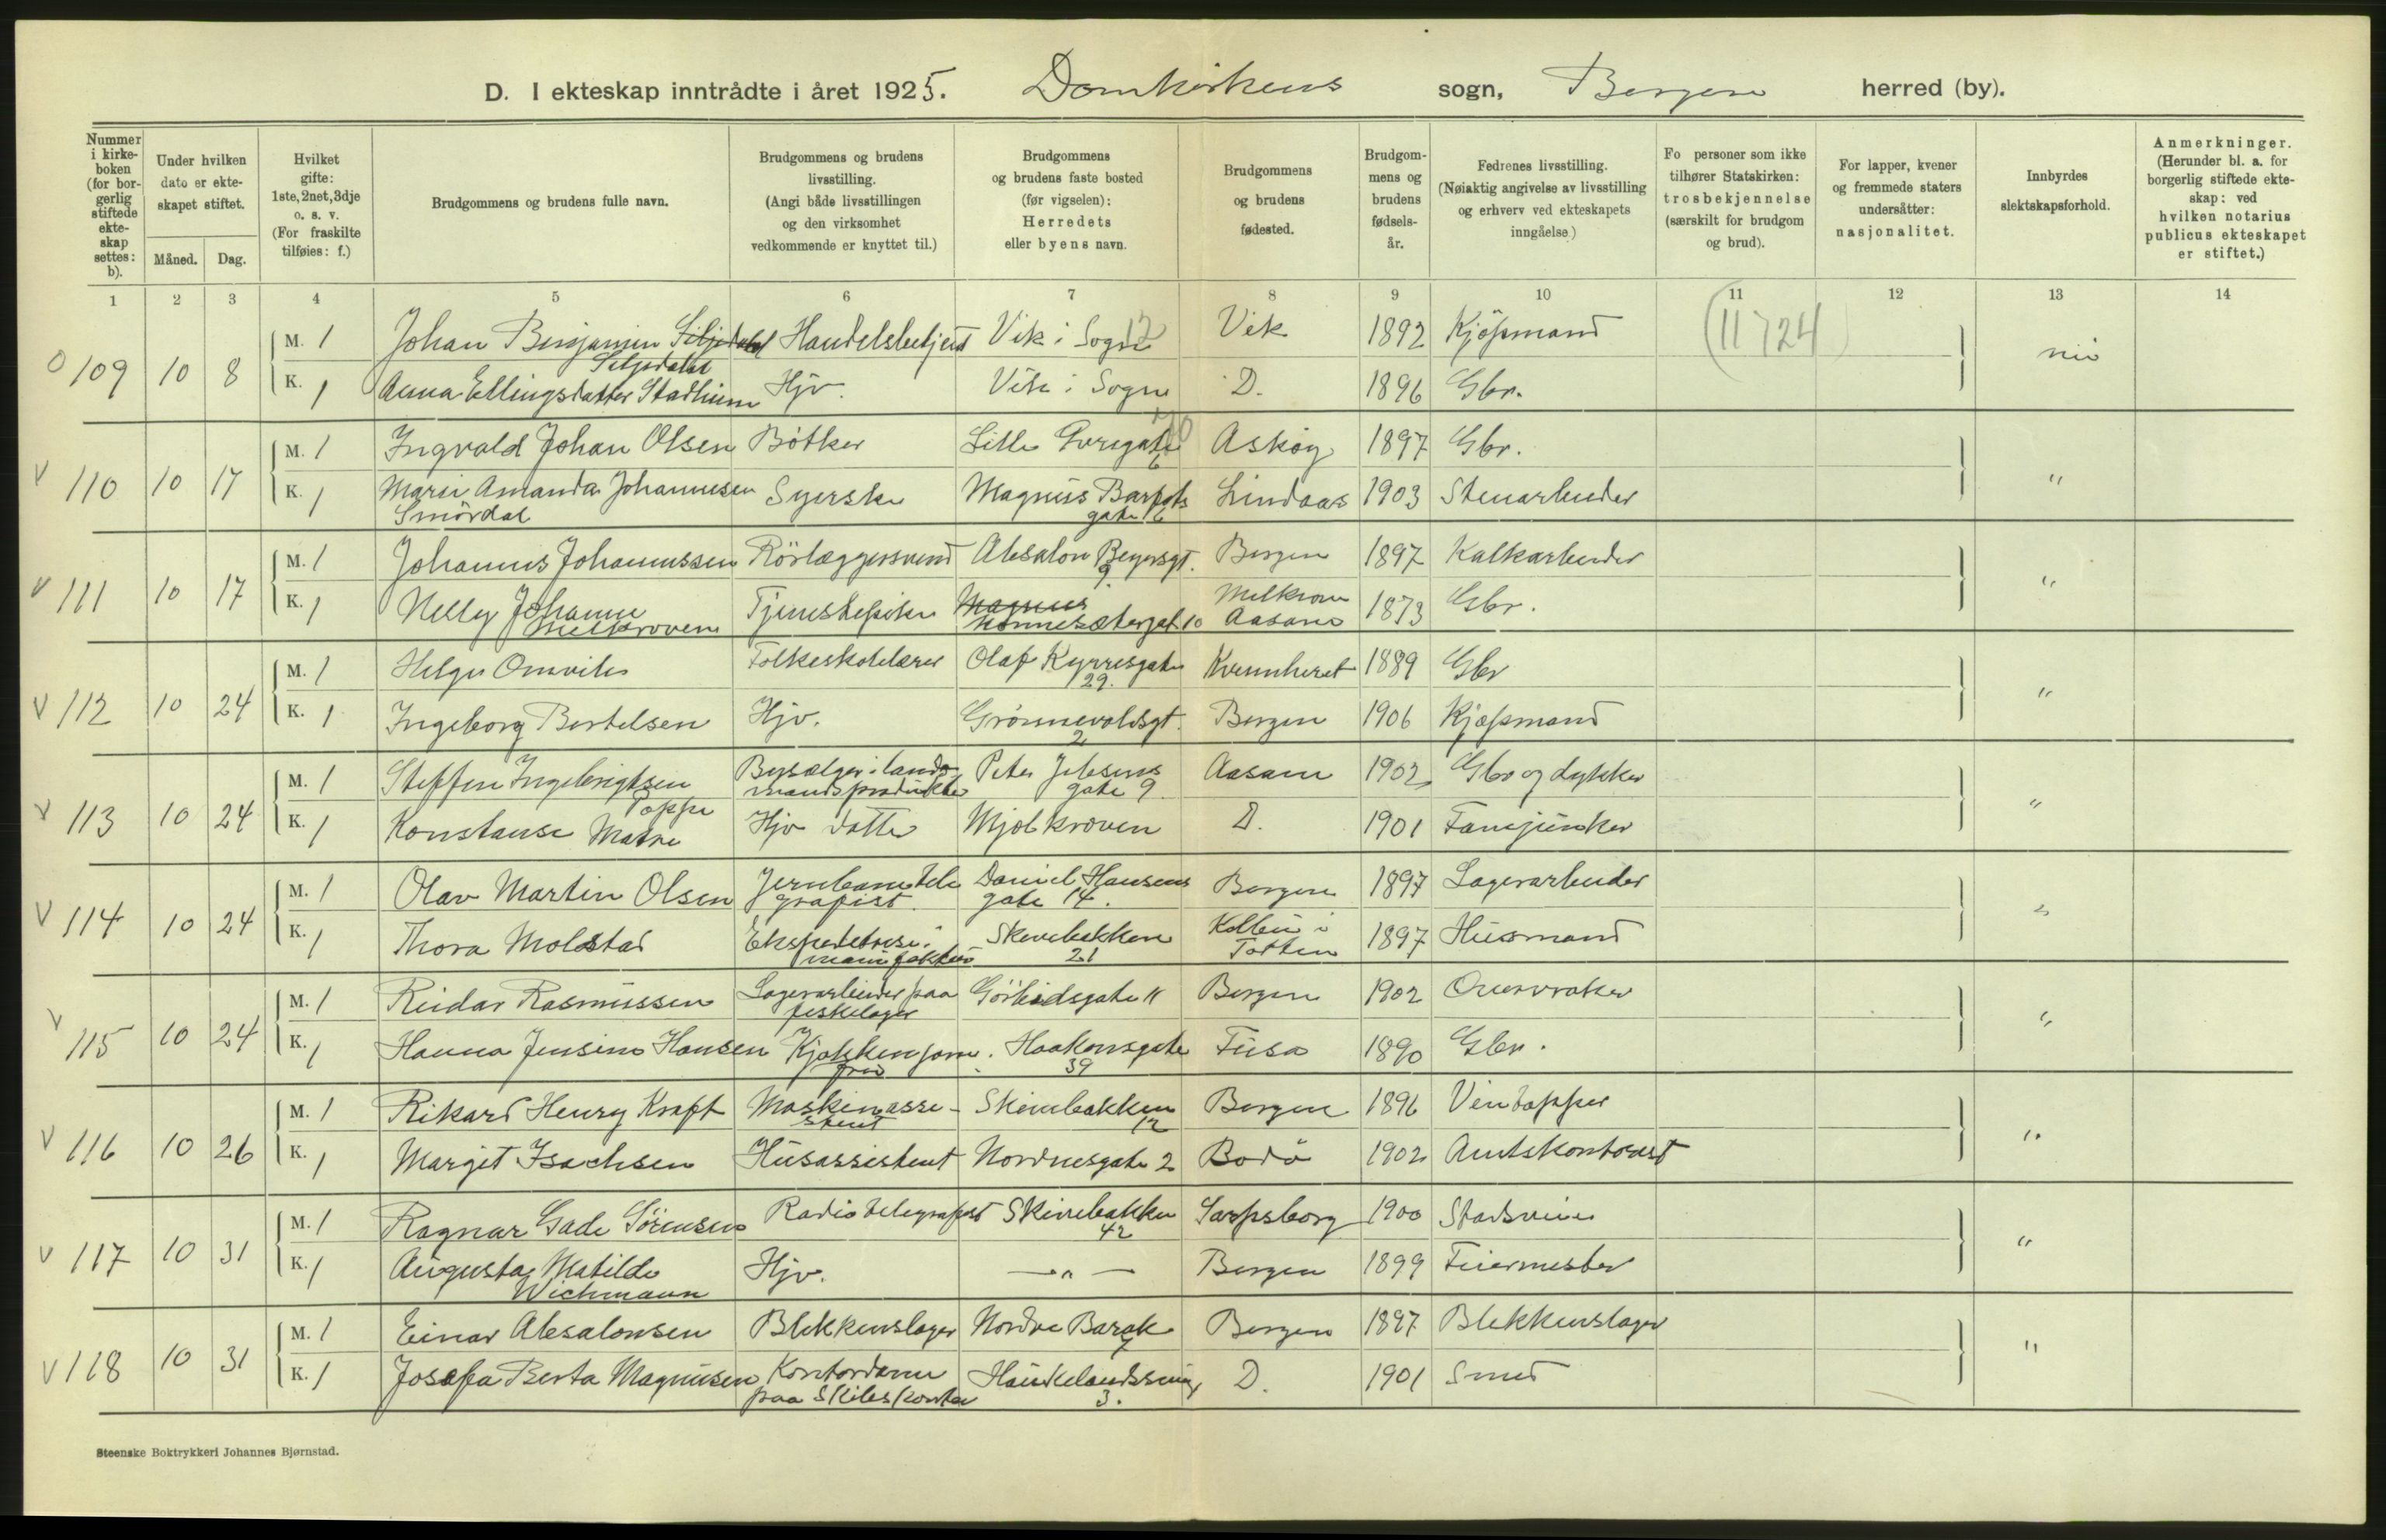 D. I ekteskap inntrådte i året 1925. Domkirkens sogn, Bergen herred (by).
Nummer i kirke-boken (for bor-gerlig stiftede ekte-skap settes: b).
Under hvilken dato er ekte-skapet stiftet.
Måned. Dag.
Hvilket gifte: 1ste, 2net, 3dje o. s. v. (For fraskilte tilføies: f.)
Brudgommens og brudens fulle navn.
Brudgommens og brudens livsstilling. (Angi både livsstillingen og den virksomhet vedkommende er knyttet til.)
Brudgommens og brudens faste bosted (før vigselen): Herredets eller byens navn.
Brudgommens og brudens fødested.
Brudgom-mens og brudens fødsels-år.
Fedrenes livsstilling. (Nøiaktig angivelse av livsstilling og erhverv ved ekteskapets inngåelse)
Fo personer som ikke tilhører Statskirken: trosbekjennelse (særskilt for brudgom og brud).
For lapper, kvener og fremmede staters undersåtter: nasjonalitet.
Innbyrdes slektskapsforhold.
Anmerkninger. (Herunder bl. a. for borgerlig stiftede ekte-skap: ved hvilken notarius publicus ekteskapet er stiftet.)
1 2 3 4 5 6 7 8 9 10 11 12 13 14
109 10 8 M. 1 Johan Benjamin Siljedahl Handelsbetjent Vik i Sogn 12 Vik 1892 Kjöpmand (11724)
Siljedahl
K. 1 Anna Ellingsdatter Stadheim Hjv. Vik i Sogn D. 1896 Gbr.
V 110 10 17 M. 1 Ingvald Johan Olsen Bötker Lille Øvregate Askøy 1897 Gbr.
K. 1 Marie Amanda Johannesen Syerske Magnus Barfots Lindaas 1903 Stenarbeider "
Smördal gate 16
V 111 10 17 M. 1 Johannes Johannessen Rörlæggersvend Absalon Beyersgt. Bergen 1897 Kalkarbeider "
9.
K. 1 Nelly Johanne Tjenestepike Magnus Melkraaen 1873 Gbr.
Mjelkroven Nonnesætergat. 10 Aasane
V 112 10 24 M. 1 Helge Omvik Folkeskolelærer Olaf Kyrresgate Kvinnheret 1889 Gbr "
29.
K. 1 Ingeborg Bertelsen Hjv. Grönnevoldsgt. Bergen 1906 Kjøpmand
2
V 113 10 24 M. 1 Steffen Ingebrigtsen Bysælger i lands Peter Jebsens Aasane 1902 Gbr og dykker "
Toppe mandsprodukter gate 9
K. 1 Konstanse Matre Hjv datter Mjølkroven D. 1901 Fanejunker
V 114 10 24 M. 1 Olav Martin Olsen Jernbanetele Daniel Hansens Bergen 1897 Lagerarbeider "
grafist. gate 14.
K. 1 Thora Molstad Ekspeditrise i Skivebakken Kolbu i 1897 Husmand
manufaktur 21 Totten
V 115 10 24 M. 1 Reidar Rasmussen Lagerarbeider paa Görbidsgate 11 Bergen 1902 Ovenvraker "
fiskelager
K. 1 Hanna Jensine Hansen Kjøkkenjom Haakonsgate Fusa 1890 Gbr.
fru 39
V 116 10 26 M. 1 Rikard Henry Kraft Maskinassi- Skivebakken Bergen 1896 Vintapper "
stent 12
K. 1 Margit Isachsen Husassistent Nordnesgate 2 Bodö 1902 Amtskontorist
V 117 10 31 M. 1 Ragnar Gade Sörensen Radiotelegrafist Skivebakken Sarpsborg 1900 "
42
K. 1 Augusta Matilde Hjv. — " — Bergen 1899 Feiermester
Wichmann
V 118 10 31 M. 1 Einar Absalonsen Blikkenslager Nordre Barak Bergen 1897 Blikkenslager "
7
K. 1 Josefa Berta Magnusen Kontordame Haukelandssving D. 1901 Smed
paa Skibskontor 3.
Steenske Boktrykkeri Johannes Bjørnstad.